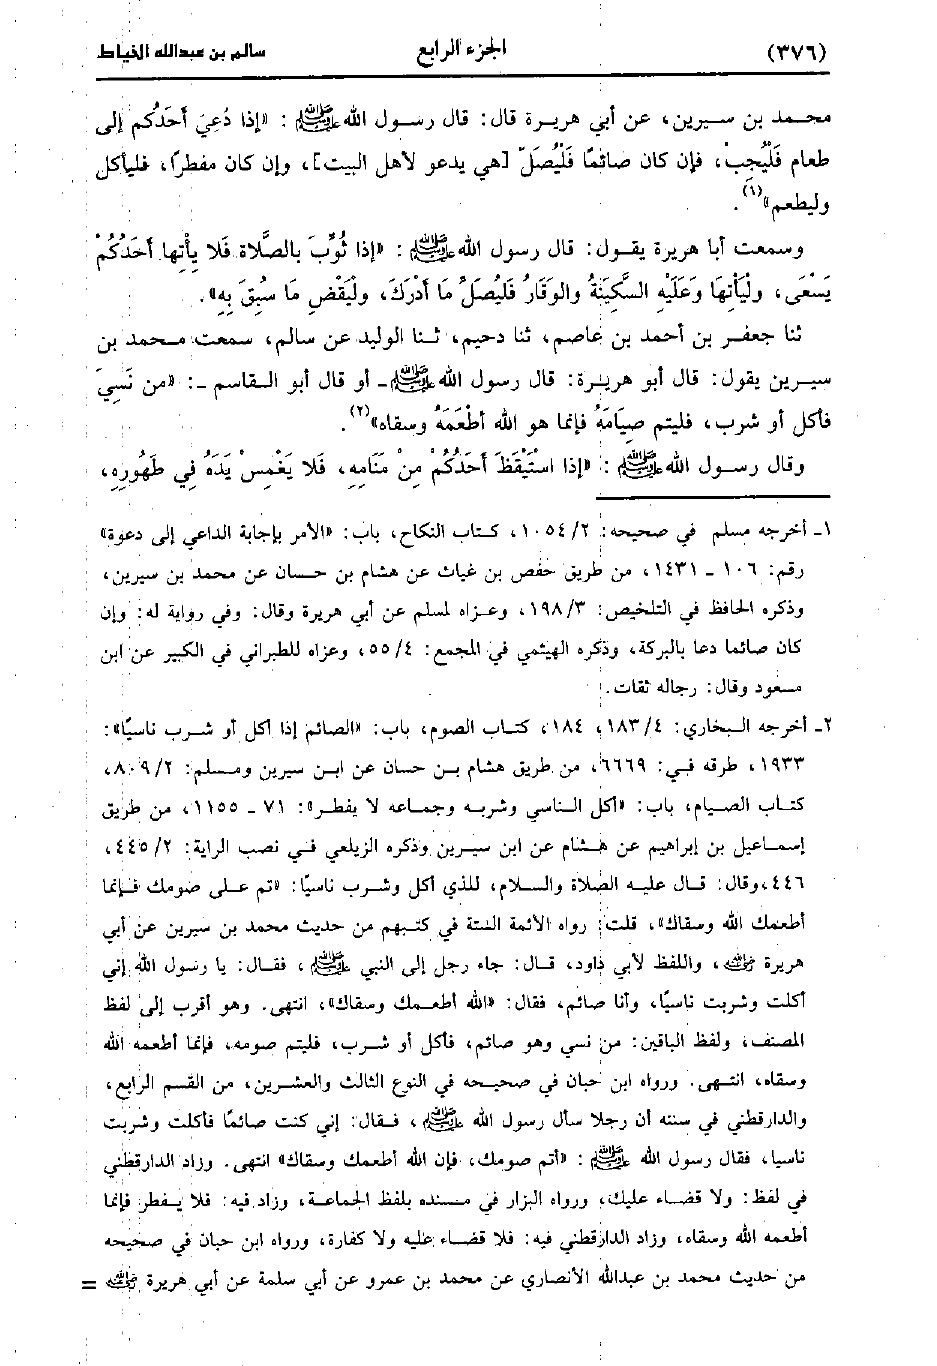 (٣٧٦) الجزء الرابع سالم بن عبدالله الخياط
محمد بن سيرين، عن أبي هريرة قال: قال رسول الله ﷺ : «إذا دُعِيَ أحَدُكُم إلى
طعام فَلْيُجِبْ، فإن كان صائمًا فَلْيُصَلّ [هي يدعو لأهل البيت]، وإن كان مفطرًا، فليأكل
وليطعم»(١).
وسمعت أبا هريرة يقول: قال رسول الله ﷺ : «إذا ثُوِّبَ بالصَّلاة فَلا يأْتها أحَدُكُمْ
يَسْعَى، ولْيَأتِهَا وَعَلَيْهِ السَّكِينَةُ والوَقَارُ فَليُصَلِّ مَا أدْرَكَ، ولْيَقْضِ مَا سُبِقَ بِهِ».
ثنا جعفر بن أحمد بن عاصم، ثنا دحيم، ثنا الوليد عن سالم، سمعت محمد بن
سيرين يقول: قال أبو هريرة: قال رسول الله ﷺ ـ أو قال أبو القاسم ـ: «من نَسِيَ
فأكل أو شرب، فليتم صِيَامَهُ فإنما هو الله أطْعَمَهُ وسقاه»(٢).
وقال رسول الله ﷺ : «إذا اسْتَيْقَظَ أحَدُكُمْ مِنْ مَنَامِهِ، فَلا يَغْمِسْ يَدَهُ فِي طَهُورِهِ،
١ـ أخرجه مسلم في صحيحه: ١٠٥٤/٢، كتاب النكاح، باب: «الأمر بإجابة الداعي إلى دعوة»
رقم: ١٠٦ ـ ١٤٣١، من طريق حفص بن غياث عن هشام بن حسان عن محمد بن سيرين،
وذكره الحافظ في التلخيص: ١٩٨/٣، وعزاه لمسلم عن أبي هريرة وقال: وفي رواية له: وإن
كان صائما دعا بالبركة، وذكره الهيثمي في المجمع: ٥٥/٤، وعزاه للطبراني في الكبير عن ابن
مسعود وقال: رجاله ثقات.
٢ـ أخرجه البخاري: ١٨٣/٤، ١٨٤، كتاب الصوم، باب: «الصائم إذا أكل أو شرب ناسيًا»:
١٩٣٣، طرفه في: ٦٦٦٩، من طريق هشام بن حسان عن ابن سيرين ومسلم: ٨٠٩/٢،
كتاب الصيام، باب: «أكل الناسي وشربه وجماعه لا يفطر»: ٧١ ـ ١١٥٥، من طريق
إسماعيل بن إبراهيم عن هشام عن ابن سيرين وذكره الزيلعي في نصب الراية: ٤٤٥/٢،
٤٤٦، وقال: قال عليه الصلاة والسلام، للذي أكل وشرب ناسيًا: «تم على صومك فإنما
أطعمك الله وسقاك»، قلت: رواه الأئمة الستة في كتبهم من حديث محمد بن سيرين عن أبي
هريرة رضي الله عنه، واللفظ لأبي داود، قال: جاء رجل إلى النبي ﷺ، فقال: يا رسول الله إني
أكلت وشربت ناسيًا، وأنا صائم، فقال: «الله أطعمك وسقاك»، انتهى. وهو أقرب إلى لفظ
المصنف، ولفظ الباقين: من نسي وهو صائم، فأكل أو شرب، فليتم صومه، فإنما أطعمه الله
وسقاه، انتهى. ورواه ابن حبان في صحيحه في النوع الثالث والعشرين، من القسم الرابع،
والدارقطني في سننه أن رجلا سأل رسول الله ﷺ، فقال: إني كنت صائمًا فأكلت وشربت
ناسيا، فقال رسول الله ﷺ : «أتم صومك، فإن الله أطعمك وسقاك» انتهى. وزاد الدارقطني
في لفظ: ولا قضاء عليك، ورواه البزار في مسنده بلفظ الجماعة، وزاد فيه: فلا يفطر فإنما
أطعمه الله وسقاه، وزاد الدارقطني فيه: فلا قضاء عليه ولا كفارة، ورواه ابن حبان في صحيحه
من حديث محمد بن عبدالله الأنصاري عن محمد بن عمرو عن أبي سلمة عن أبي هريرة رضي الله عنه =